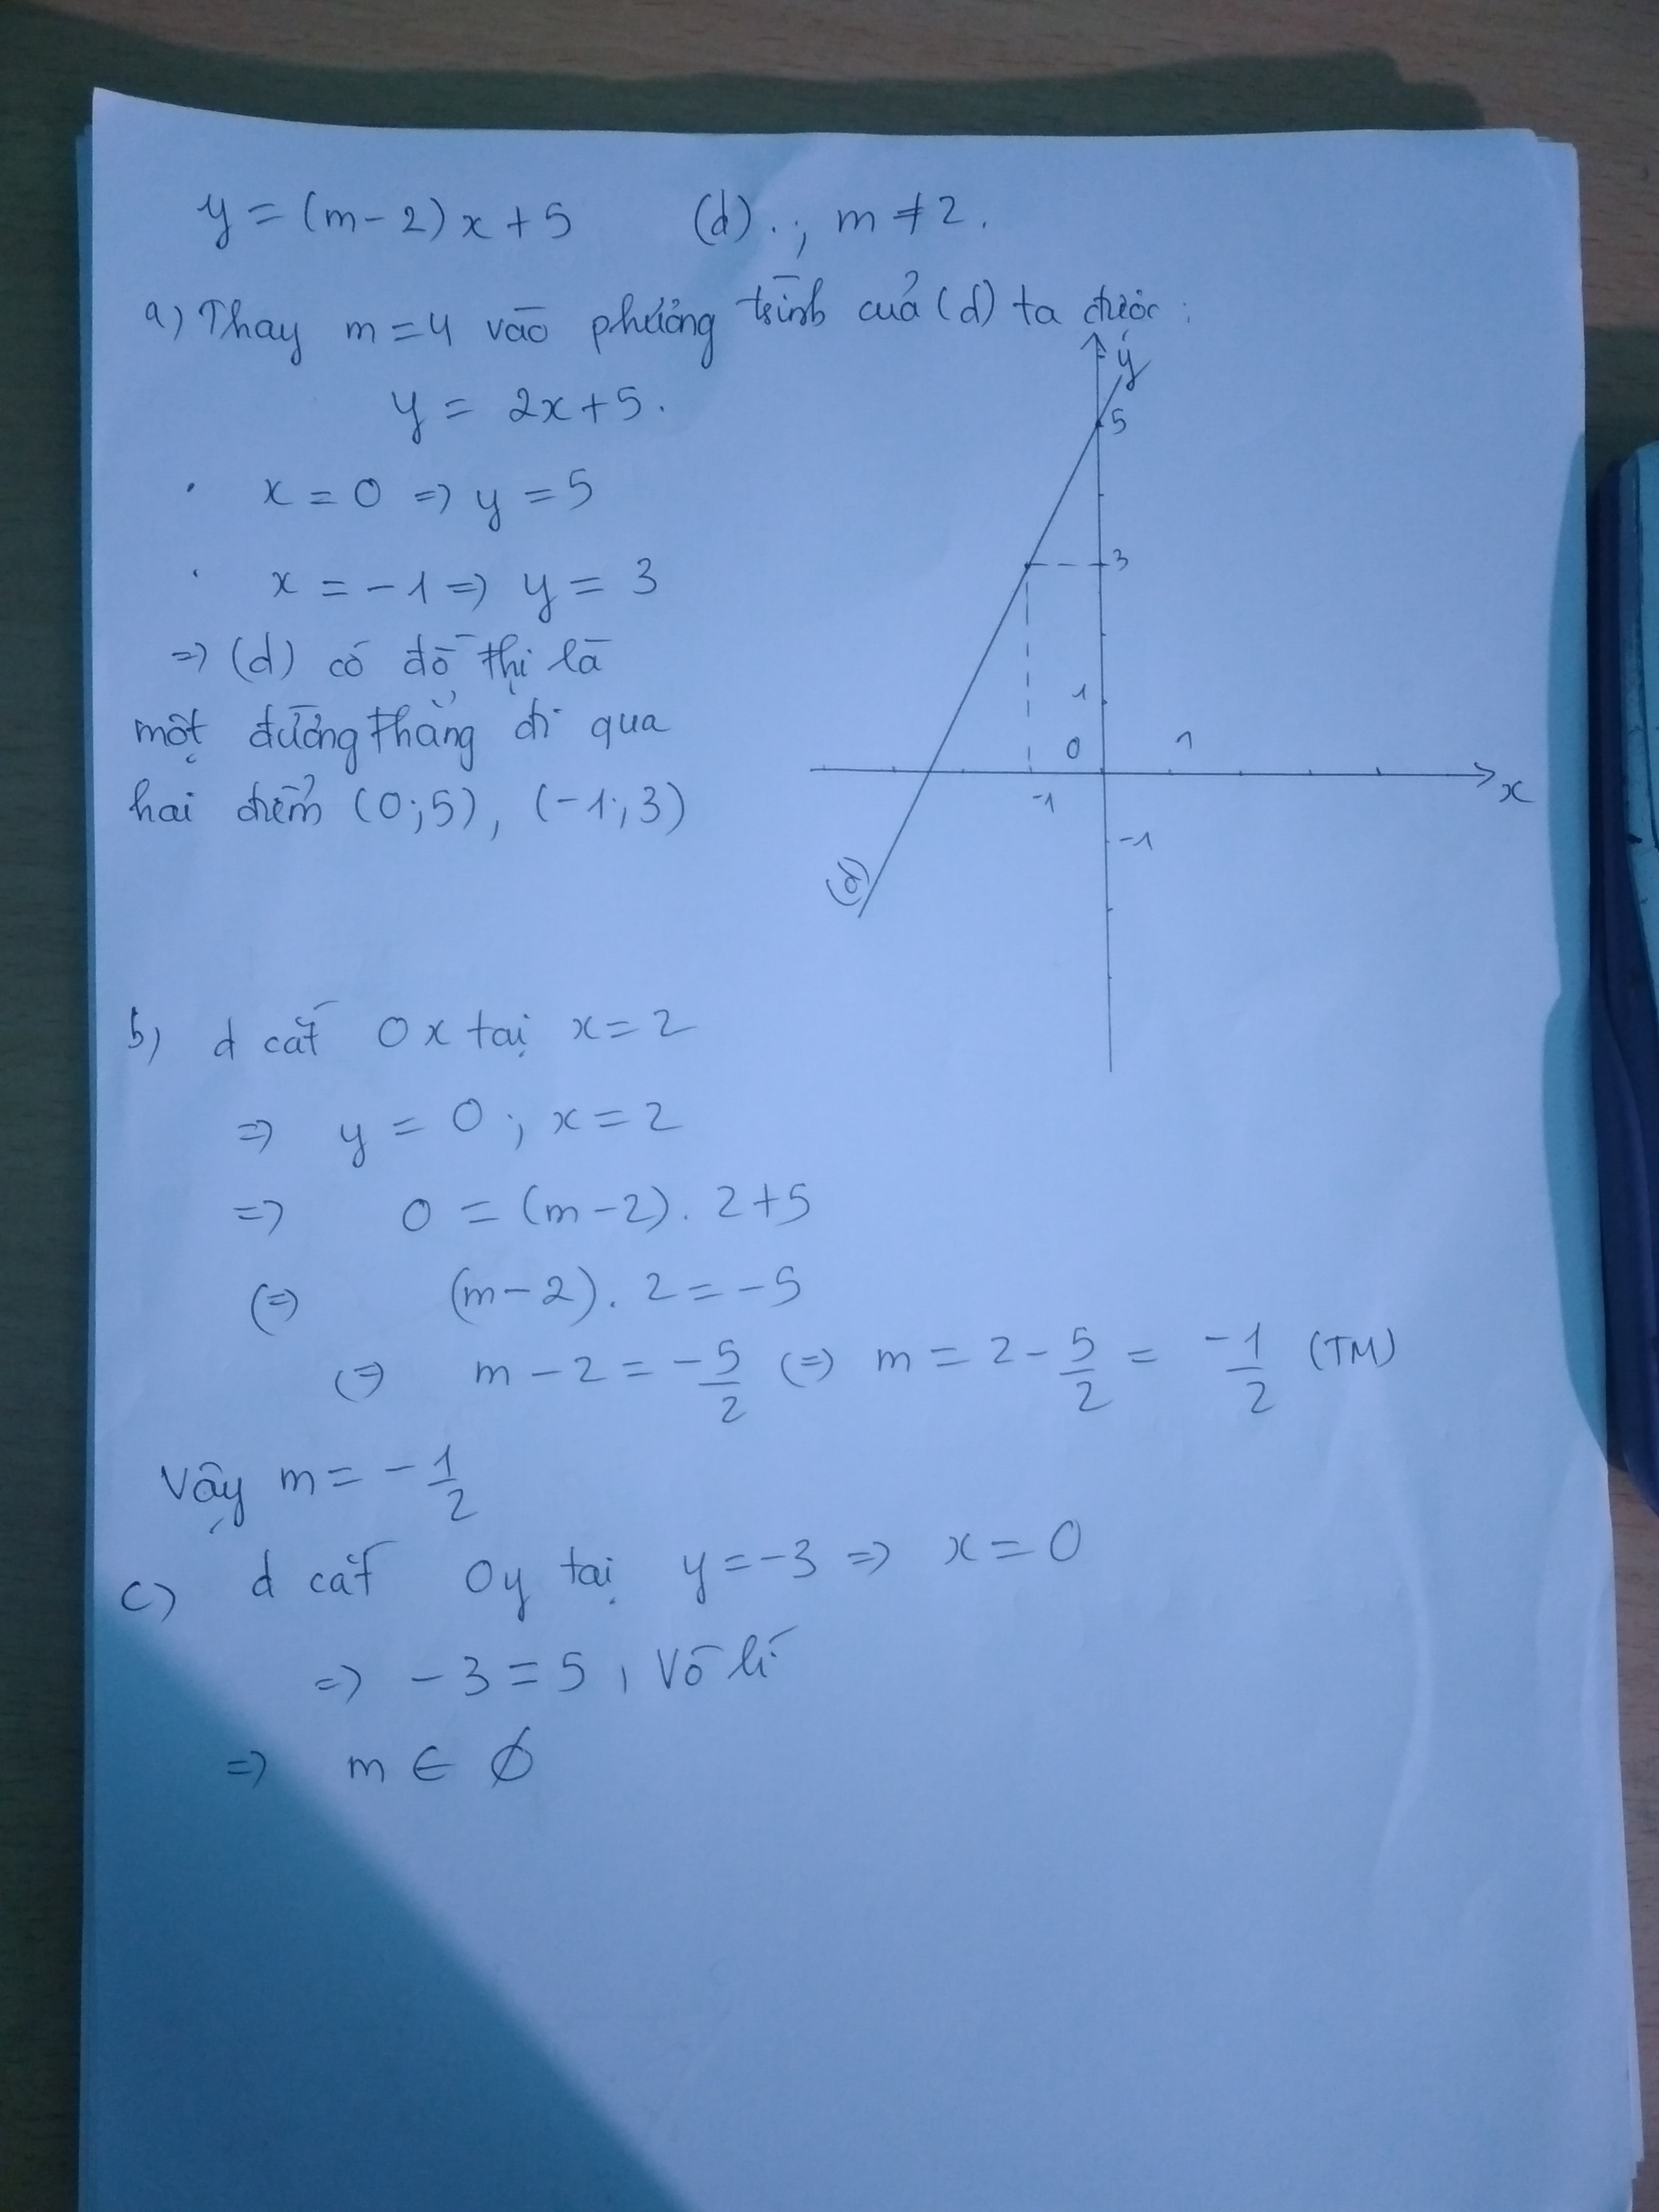 y = (m-2)x+5 (d).; m ≠ 2.
a) Thay m=4 vào phương trình của (d) ta được:
y = 2x+5.
. x = 0 => y = 5
. x = -1 => y = 3
=> (d) có đồ thị là
một đường thẳng đi qua
hai điểm (0;5), (-1;3)
y
5
3
1
0 1
x
-1
-1
(d)
b) d cắt Ox tại x=2
=> y = 0; x = 2
=> 0 = (m-2). 2+5
(=) (m-2). 2 = -5
(=) m - 2 = -5/2 (=) m = 2 - 5/2 = -1/2 (TM)
Vậy m = -1/2
c) d cắt Oy tại y=-3 => x = 0
=> -3 = 5, vô lí
=> m ∈ ∅